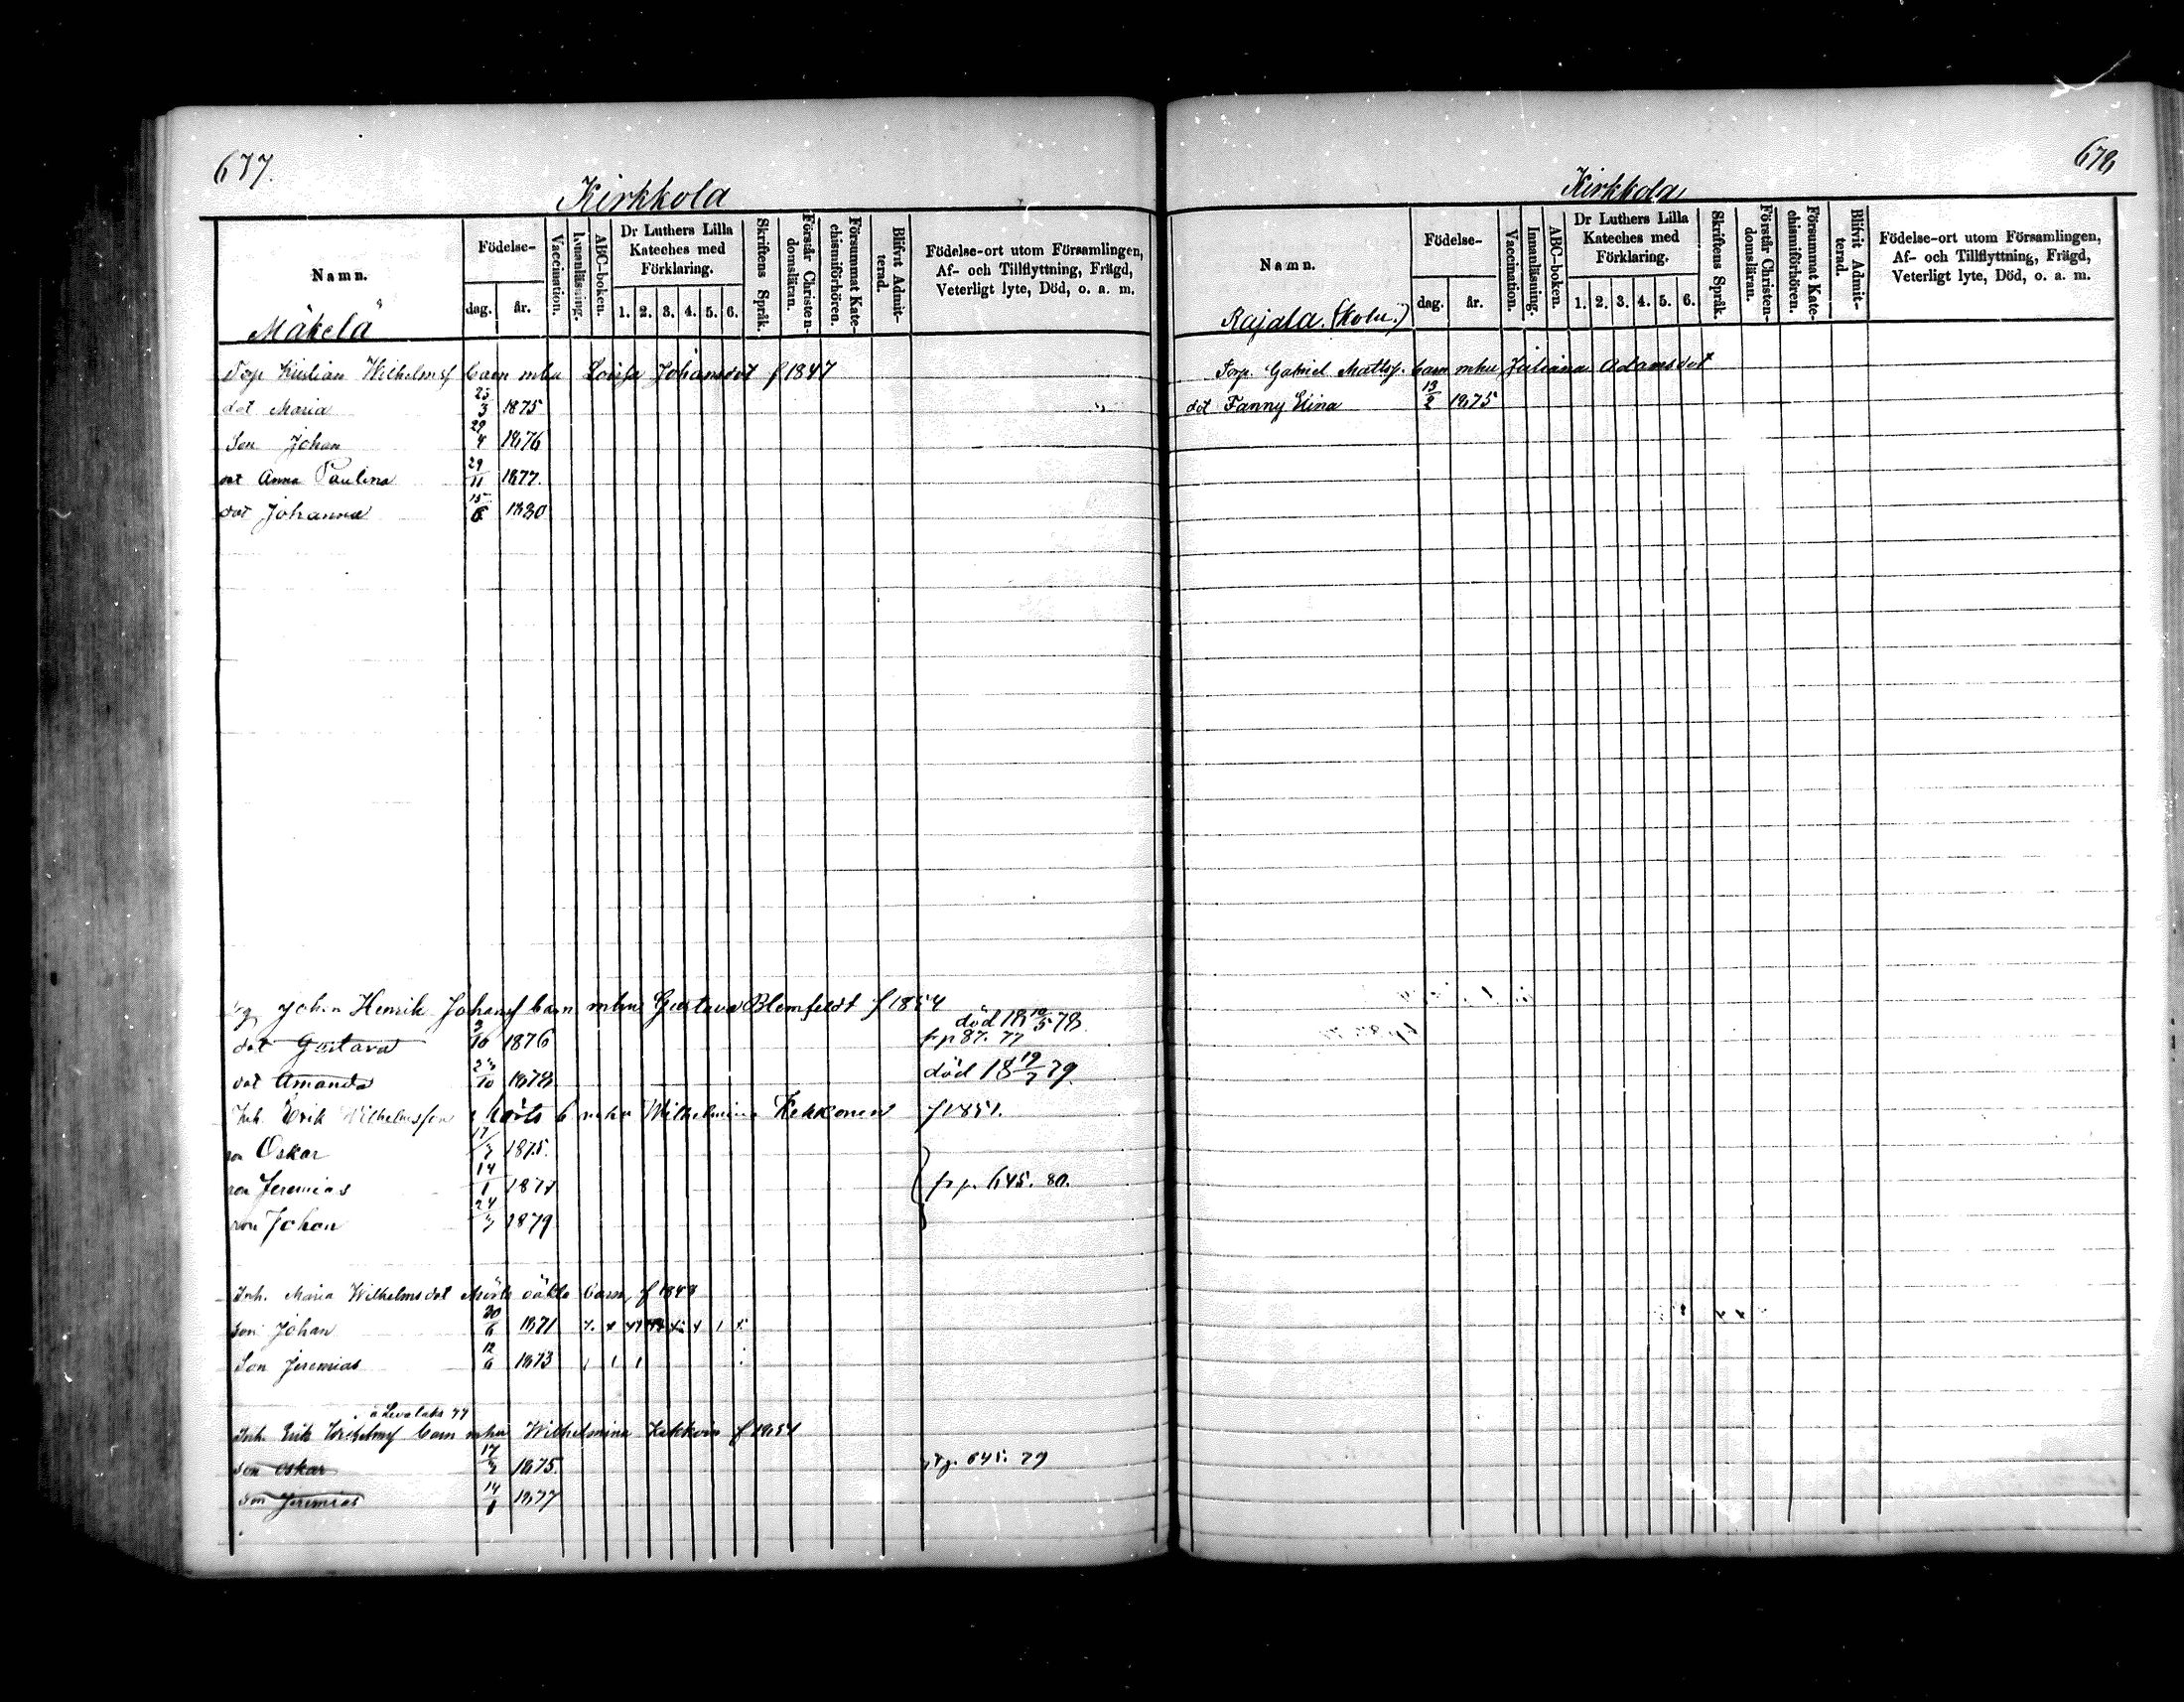 677.
Kirkkola
Namn. Födelse- dag. år. Vaccination. Innanläsning. ABC-boken. Dr Luthers Lilla Kateches med Förklaring. 1. 2. 3. 4. 5. 6. Skriftens Språk. Förstår Christendomsläran. Försummat Katechismiförhören. Blifvit Admitterad. Födelse-ort utom Församlingen, Af- och Tillflyttning, Frägd, Veterligt lyte, Död, o. a. m.
Mäkelä
Kustian Wilhelmsf barn mhu Lovisa Johansdot f 1847
dot Maria 25/3 1875
Son Johan 29/4 1876
dot Anna Paulina 29/11 1877.
dot Johanna 15/6 1880
Johan Henrik Johansf barn mhu Gustava Blomfeldt f 1854
dot Gustava 3/10 1876 död 18 10/5 78. fr p 87. 77
dot Amanda /10 1878 död 18 19/7 79.
Inh. Erik Wilhelmsson b mhu Wilhelmina Kekkonen f 1851.
son Oskar 17/3 1875.
son Jeremias 14/1 1877 fr p. 645. 80.
son Johan 24/3 1879
Inh. Maria Wilhelmsdot oäkta barn, f 1848
son Johan 20/6 1871
Son Jeremias 12/6 1873
Inh. Erik Wilhelmsf barn mhu Wilhelmina f 1851
son Oskar 17/3 1875. 645. 79
son Jeremias 14/1 1877
678
Kirkkola
Namn. Födelse- dag. år. Vaccination. Innanläsning. ABC-boken. Dr Luthers Lilla Kateches med Förklaring. 1. 2. 3. 4. 5. 6. Skriftens Språk. Förstår Christendomsläran. Försummat Katechismiförhören. Blifvit Admitterad. Födelse-ort utom Församlingen, Af- och Tillflyttning, Frägd, Veterligt lyte, Död, o. a. m.
Rajala.
Torp. Gabriel Mattsf. barn mhu Juliana Adamsdot
dot Fanny Elina 13/2 1875